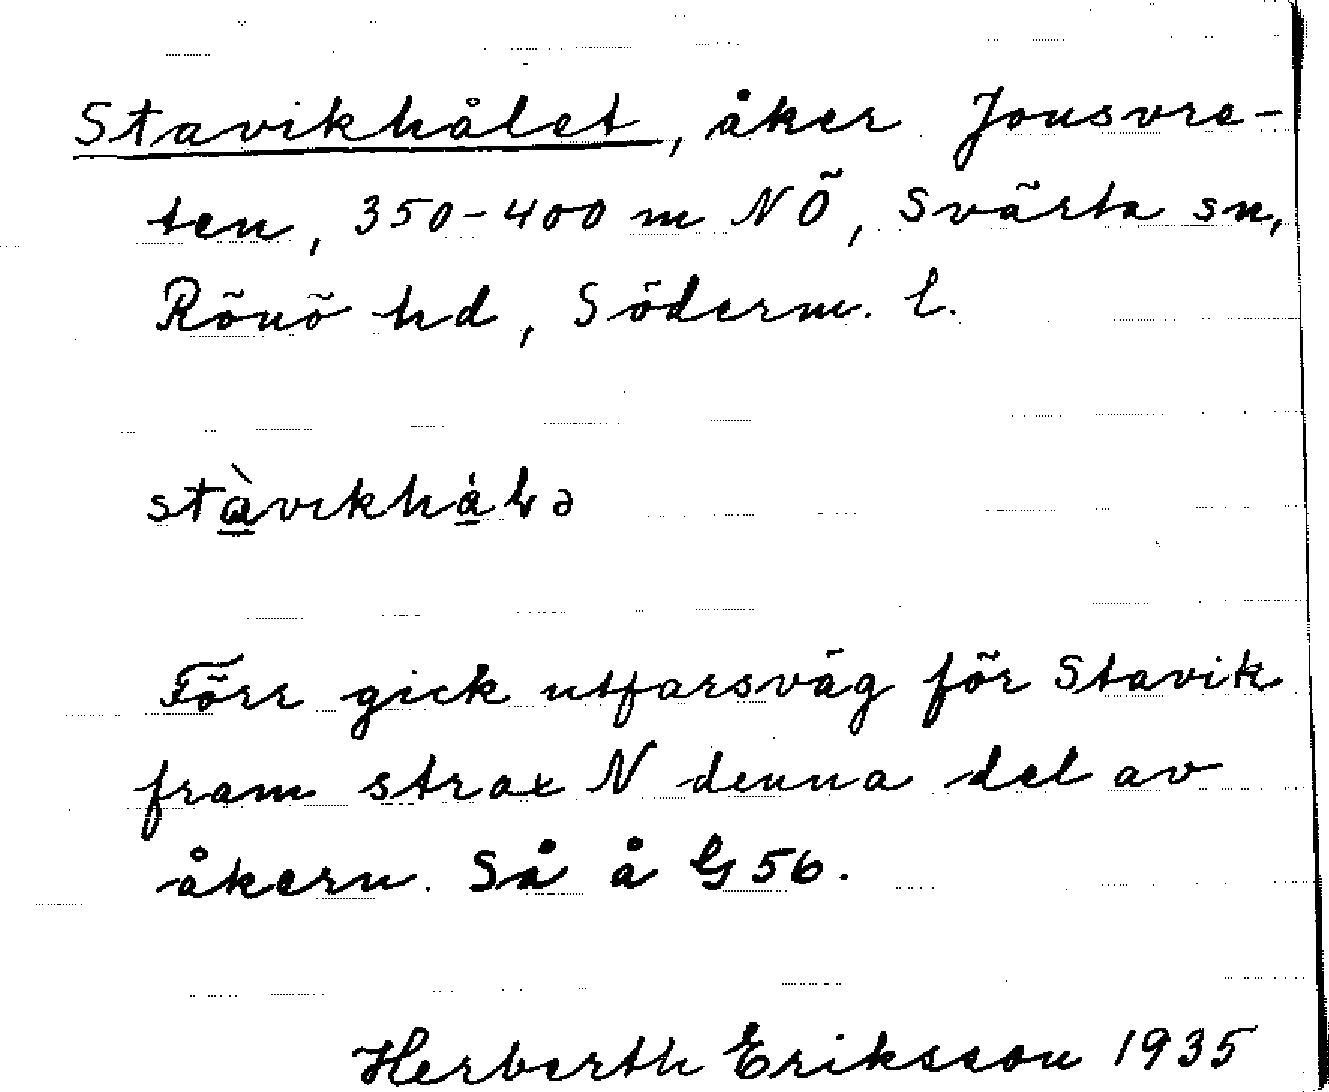 Stavikhålet, åker Jonsvre-
ten, 350-400 m NÖ, Svärta sn,
Rönö hd, Söderm. l.
Förr gick utfarsväg för Stavik
fram strax N denna del av
åkern. Så å G 56.
Herberth Eriksson 1935